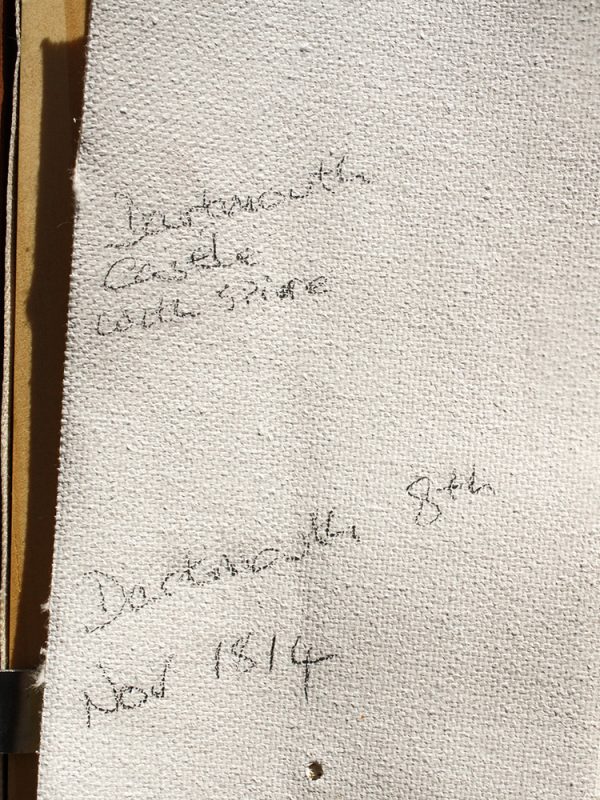 Dartmouth
Castle
with spire
Dartmouth 8th
Nov 1814